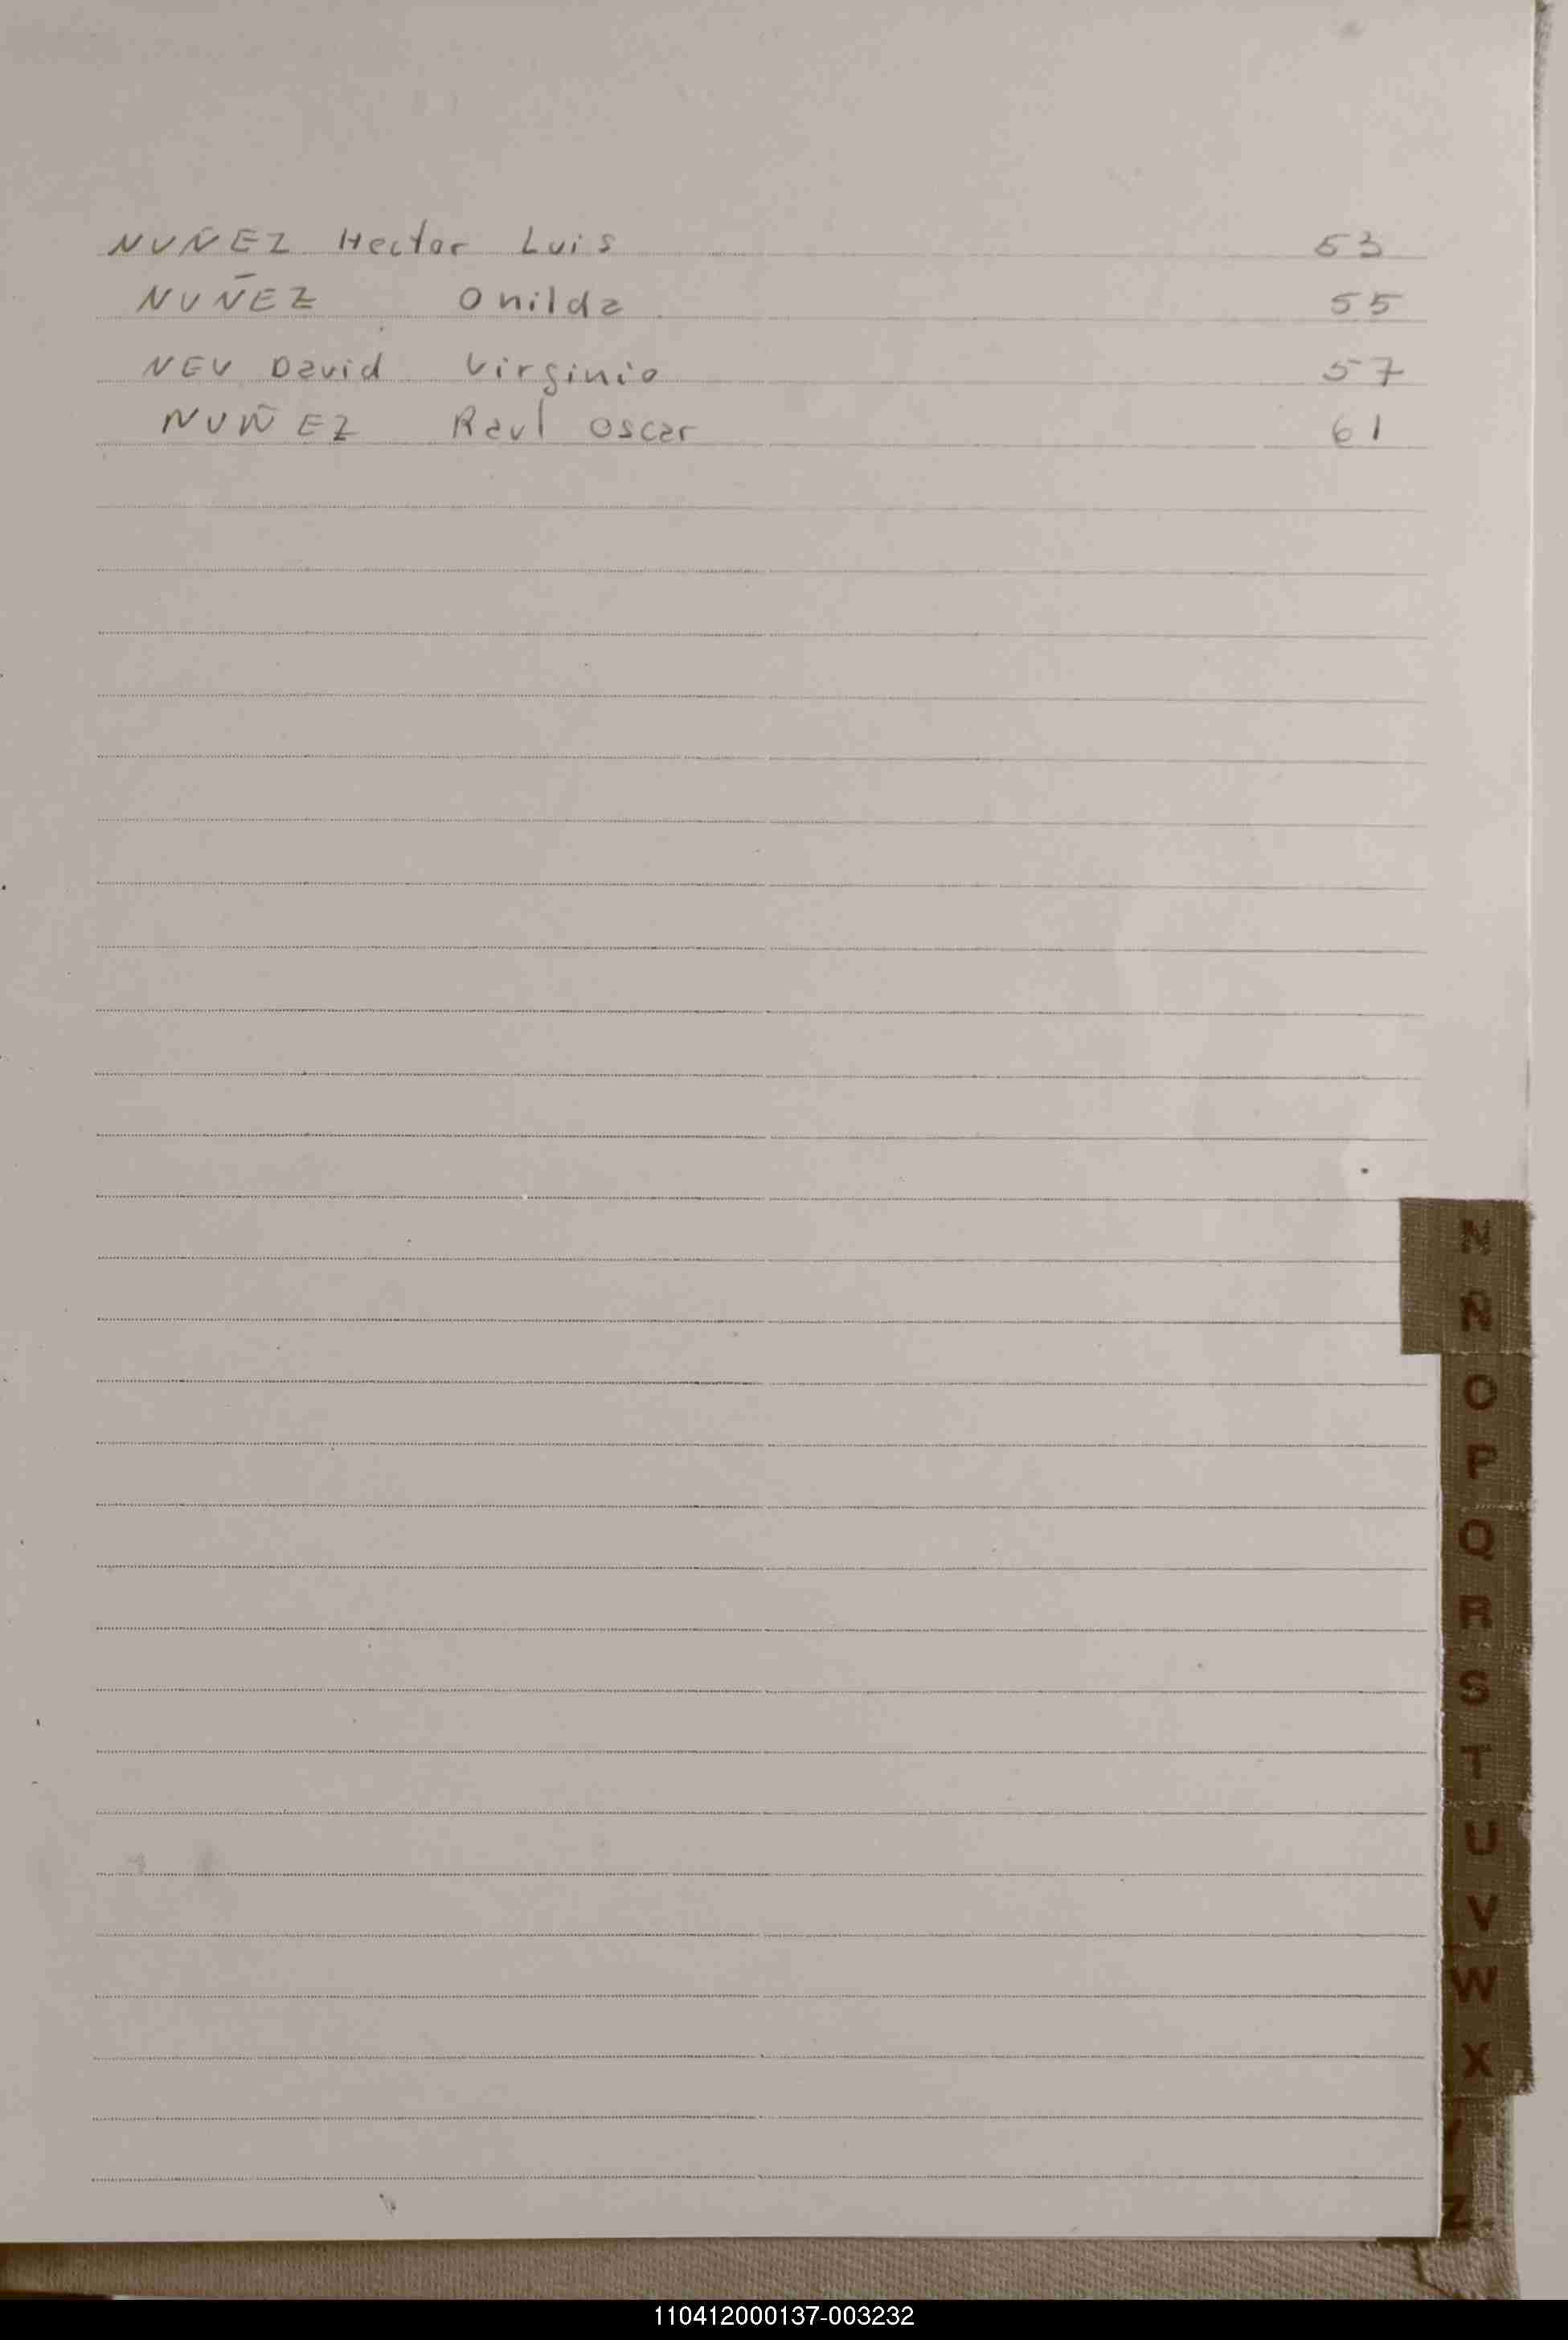 NUÑEZ Hector Luis 53
NUÑEZ Onilda 55
NEU David Virginio 57
NUÑEZ Raul Oscar 61
N
Ñ
O
P
Q
R
S
T
U
V
W
X
Z
110412000137-003232